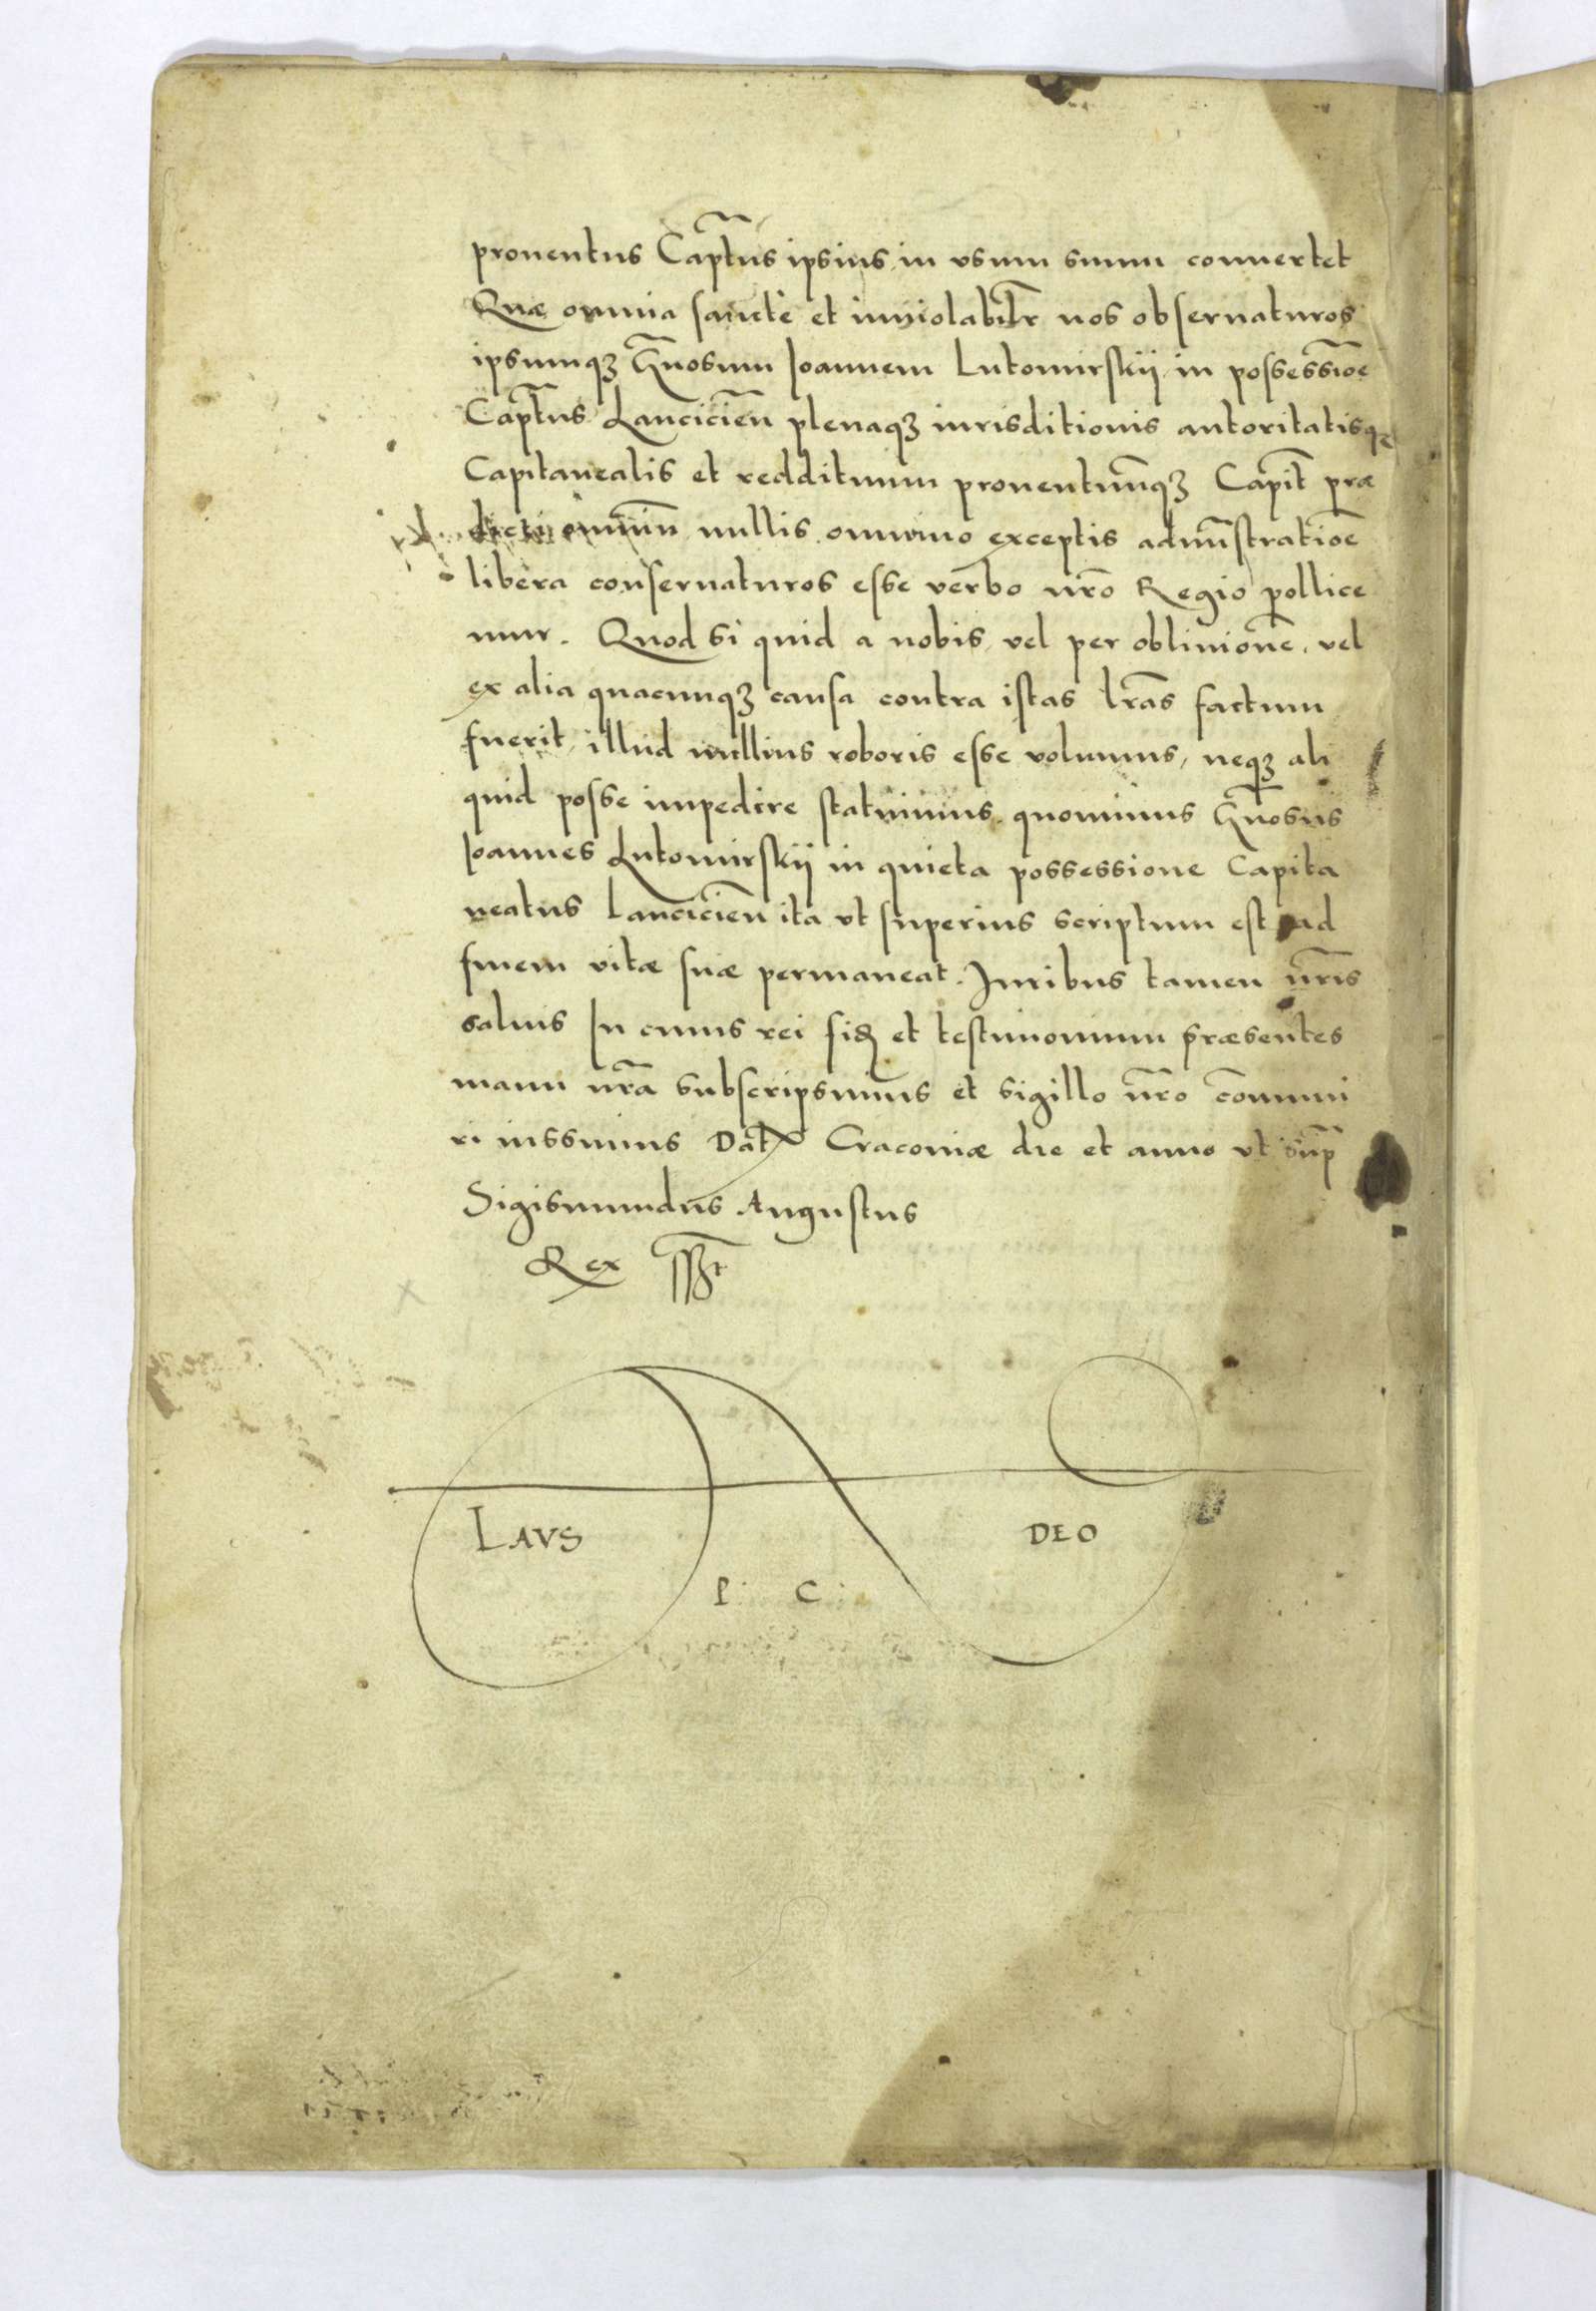 prouentus Captus ipsius in vsum suum conuertet
Quæ omnia sancte et inuiolabilr nos obseruaturos
ipsumqꝫ Gnosum Ioannem Lutomirskij in possessioe
Captus Lancicien plenaqꝫ iurisditionis autoritatisqꝫ
Capitanealis et reddituum prouentumqꝫ Capit præ
dicti omnium nullis omnino exceptis admnstratioe
libera conseruaturos esse verbo nro Regio pollice
mur. Quod si quid a nobis vel per obliuione, vel
ex alia quacunqꝫ causa contra istas lras factum
fuerit, illud nullius roboris esse volumus, neqꝫ ali
quid posse impedire statuimus quominus Gnosus
Ioannes Lutomirskij in quieta possessione Capita
neatus Lancicien ita vt superius scriptum est ad
finem vitæ suæ permaneat. Iuribus tamen nris
saluis In cuius rei fidē et testimonium præsentes
manu nra subscripsimus et sigillo nro communi
ri iussimus Dat Cracouiæ die et anno vt sup
Sigismundus Augustus
Rex
LAVS DEO
P: C: